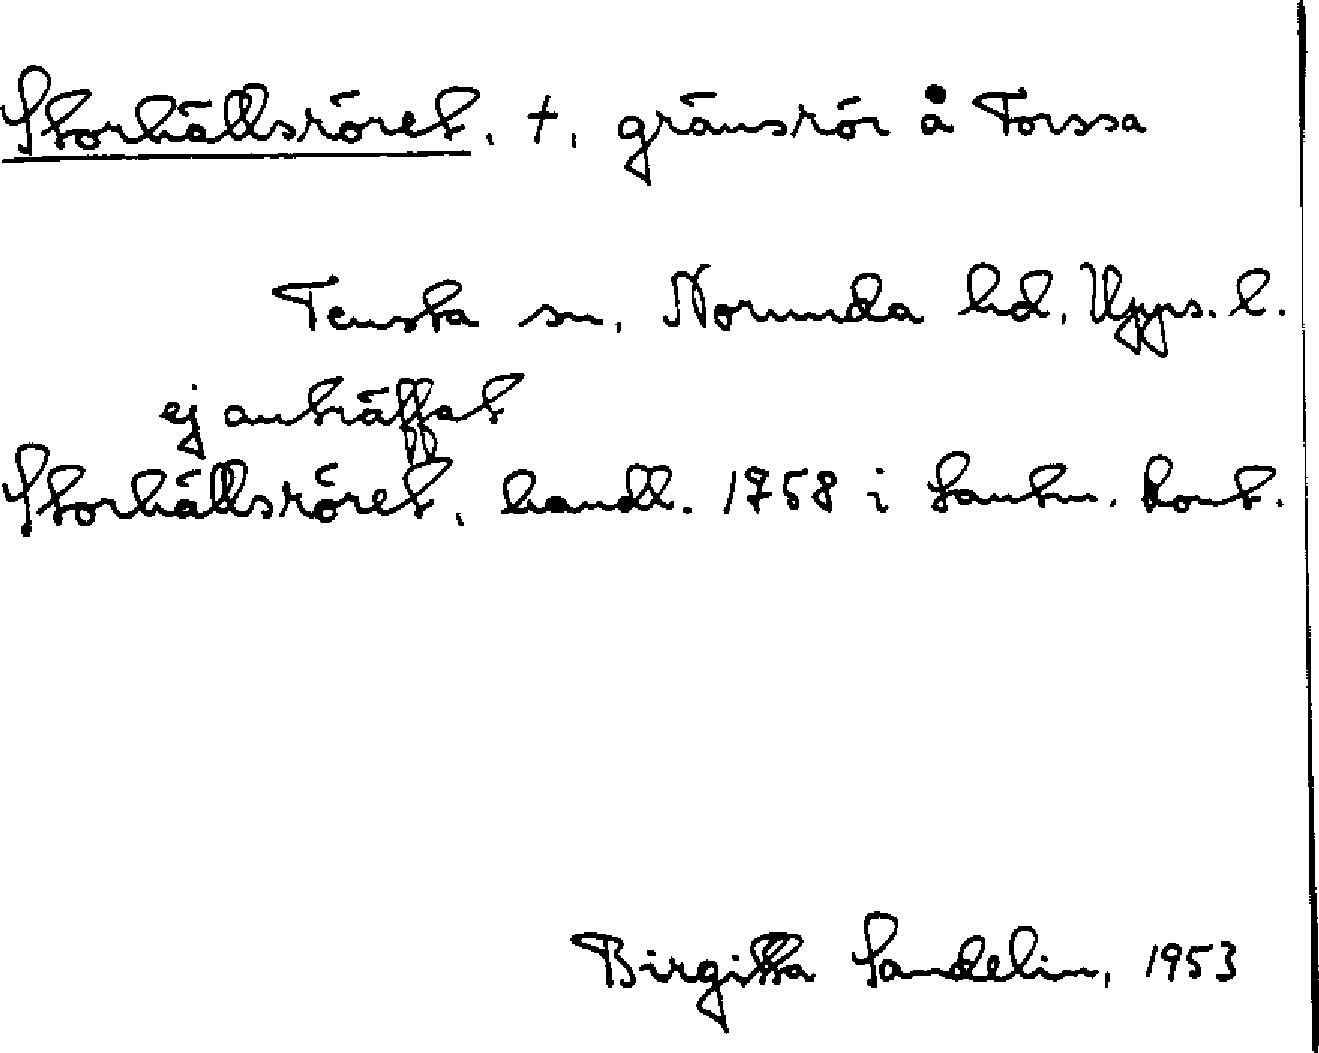 Storhällsröret, +, gränsrör å Forssa
Tensta sn, Norunda hd, Upps. l.
ej anträffat
Storhällsröret, handl. 1758 i Lantm. kont.
Birgitta Sandelin, 1953